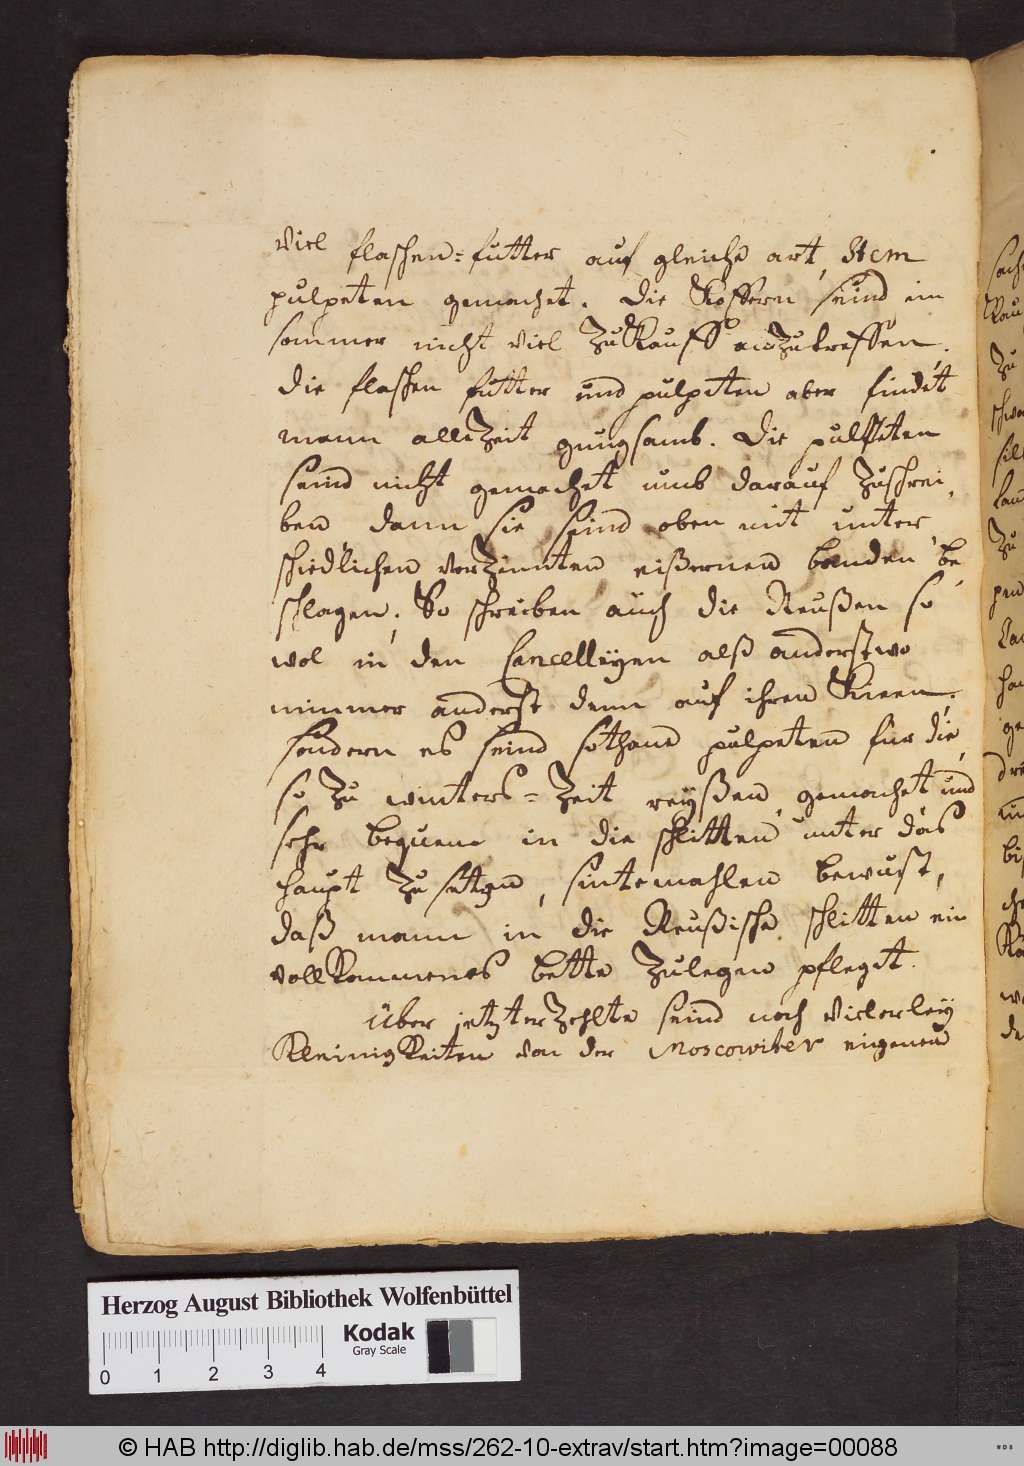 Viel flaschen-futter auf gleiche art, Item
pulpeten gemachet. Die Koffern seind im
sommer nicht viel zu Kauff anzutreffen,
die flaschen futter und pulpeten aber findet
mann alle Zeit gnugsamb. Die pulpeten
seind nicht gemachet umb darauf zuschrei,
ben dann sie seind oben mit unter,
schiedlichen verzinnten eißernen banden be,
schlagen. So schreiben auch die Reußen so
wol in den Cancelleyen alß anderstwo
nimmer anderst denn auf ihren Knieen,
sondern es seind sothane pulpeten für die
so zu winters-Zeit reyßen gemachet und
sehr bequem in die schlitten unter das
haupt zu setzen, sintemahlen bewust,
daß mann in die Reußische schlitten ein
vollkommenes bette zulegen pfleget.
Über jetzterzehlte seind noch vielerley
Kleinigkeiten von der Moscowiter eigenen
Herzog August Bibliothek Wolfenbüttel
Kodak
Gray Scale
0 1 2 3 4
© HAB http://diglib.hab.de/mss/262-10-extrav/start.htm?image=00088